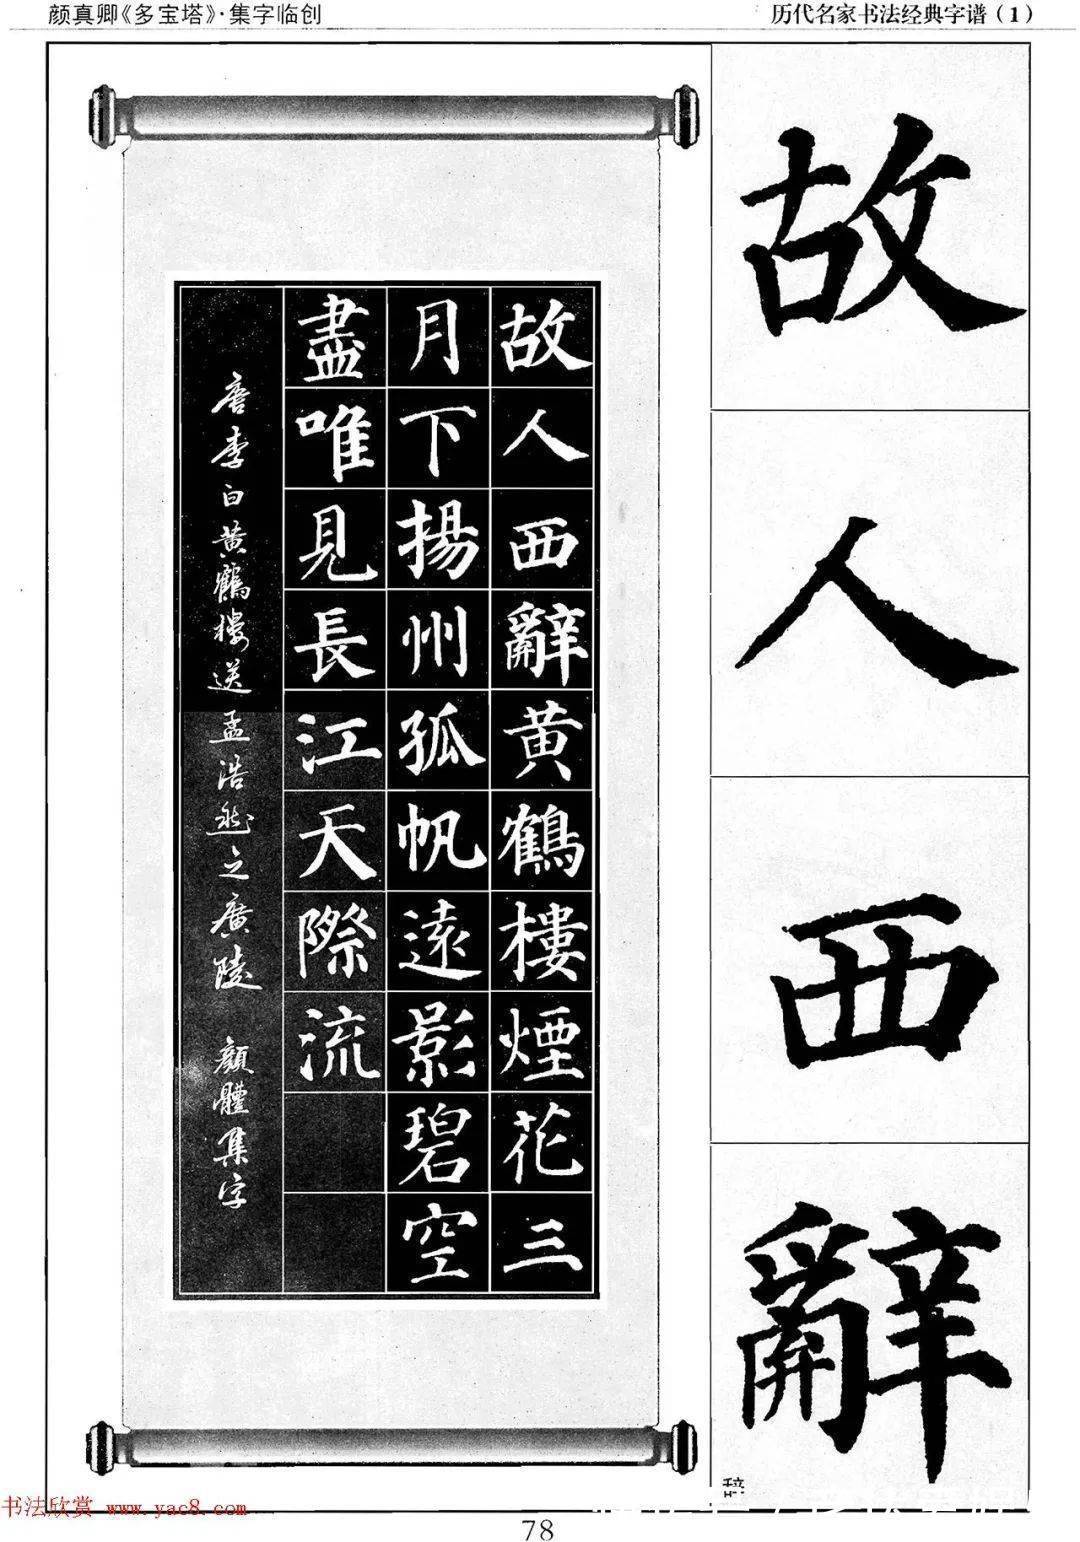 颜真卿《多宝塔》·集字临创
历代名家书法经典字谱（1）
故人西辭黄鶴樓煙花三
月下揚州孤帆遠影碧空
盡唯見長江天際流
唐李白黄鶴樓送孟浩然之廣陵 顔體集字
故
人
西
辭
辞
书法欣赏 www.yac8.com
78